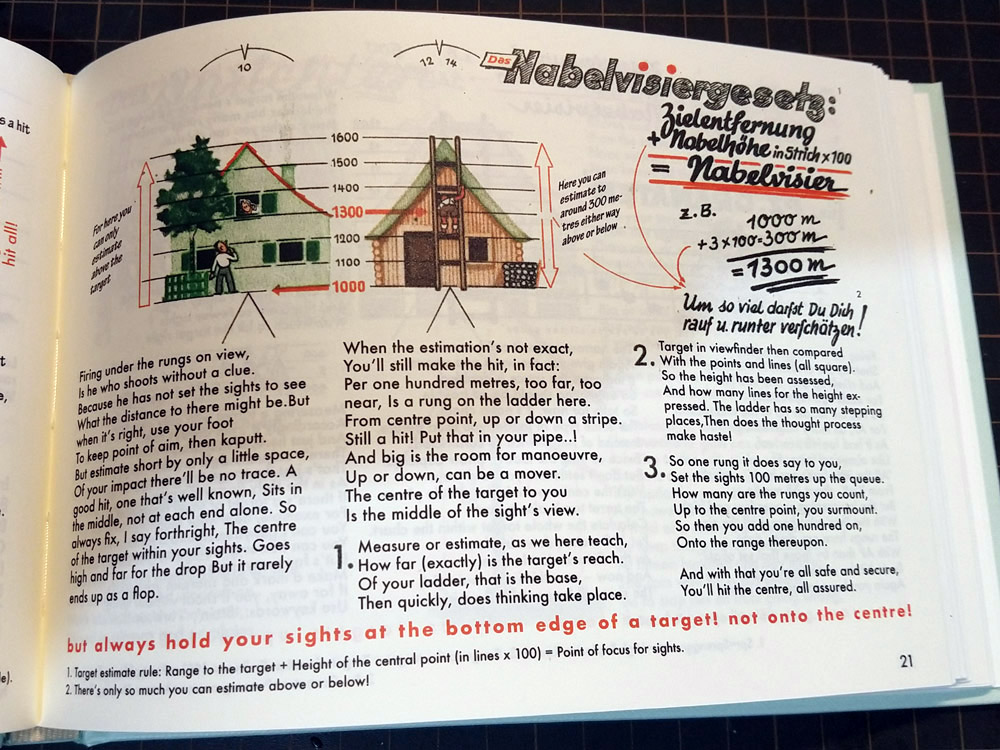 s a hit
hit all!
t
e,
le).
10
12 14
Das Nabelvisiergesetz: 1
Zielentfernung
+ Nabelhöhe in Strich x 100
= Nabelvisier
z.B. 1000 m
+ 3 x 100 = 300 m
= 1300 m
2
Um so viel darfst Du Dich
rauf u. runter verschätzen!
1600
1500
1400
1300
1200
1100
1000
For here you
can only
estimate
above the
target
Here you can
estimate to
around 300 me-
tres either way
above or below
Firing under the rungs on view,
Is he who shoots without a clue.
Because he has not set the sights to see
What the distance to there might be.But
when it's right, use your foot
To keep point of aim, then kaputt.
But estimate short by only a little space,
Of your impact there'll be no trace. A
good hit, one that's well known, Sits in
the middle, not at each end alone. So
always fix, I say forthright, The centre
of the target within your sights. Goes
high and far for the drop But it rarely
ends up as a flop.
When the estimation's not exact,
You'll still make the hit, in fact:
Per one hundred metres, too far, too
near, Is a rung on the ladder here.
From centre point, up or down a stripe.
Still a hit! Put that in your pipe..!
And big is the room for manoeuvre,
Up or down, can be a mover.
The centre of the target to you
Is the middle of the sight's view.
1. Measure or estimate, as we here teach,
How far (exactly) is the target's reach.
Of your ladder, that is the base,
Then quickly, does thinking take place.
2. Target in viewfinder then compared
With the points and lines (all square).
So the height has been assessed,
And how many lines for the height ex-
pressed. The ladder has so many stepping
places,Then does the thought process
make haste!
3. So one rung it does say to you,
Set the sights 100 metres up the queue.
How many are the rungs you count,
Up to the centre point, you surmount.
So then you add one hundred on,
Onto the range thereupon.
And with that you're all safe and secure,
You'll hit the centre, all assured.
but always hold your sights at the bottom edge of a target! not onto the centre!
1. Target estimate rule: Range to the target + Height of the central point (in lines x 100) = Point of focus for sights.
2. There's only so much you can estimate above or below!
21